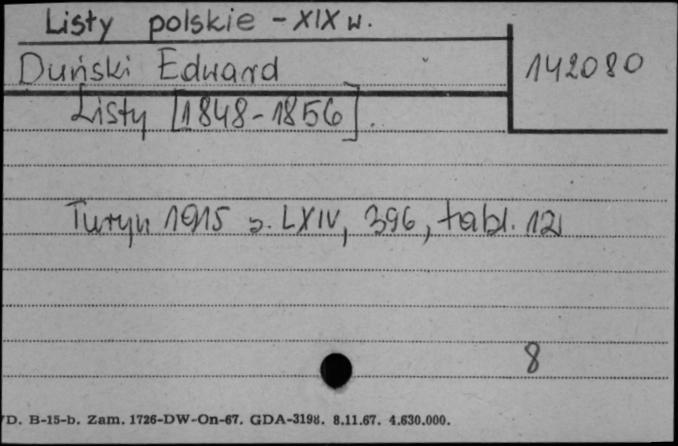 Listy polskie - XIX w.
Duński Edward
142080
Listy [1848-1856].
Turyn 1915 s. LXIV, 396, tabl. 12
8
D. B-15-b. Zam. 1726-DW-On-67. GDA-3198. 8.11.67. 4.630.000.